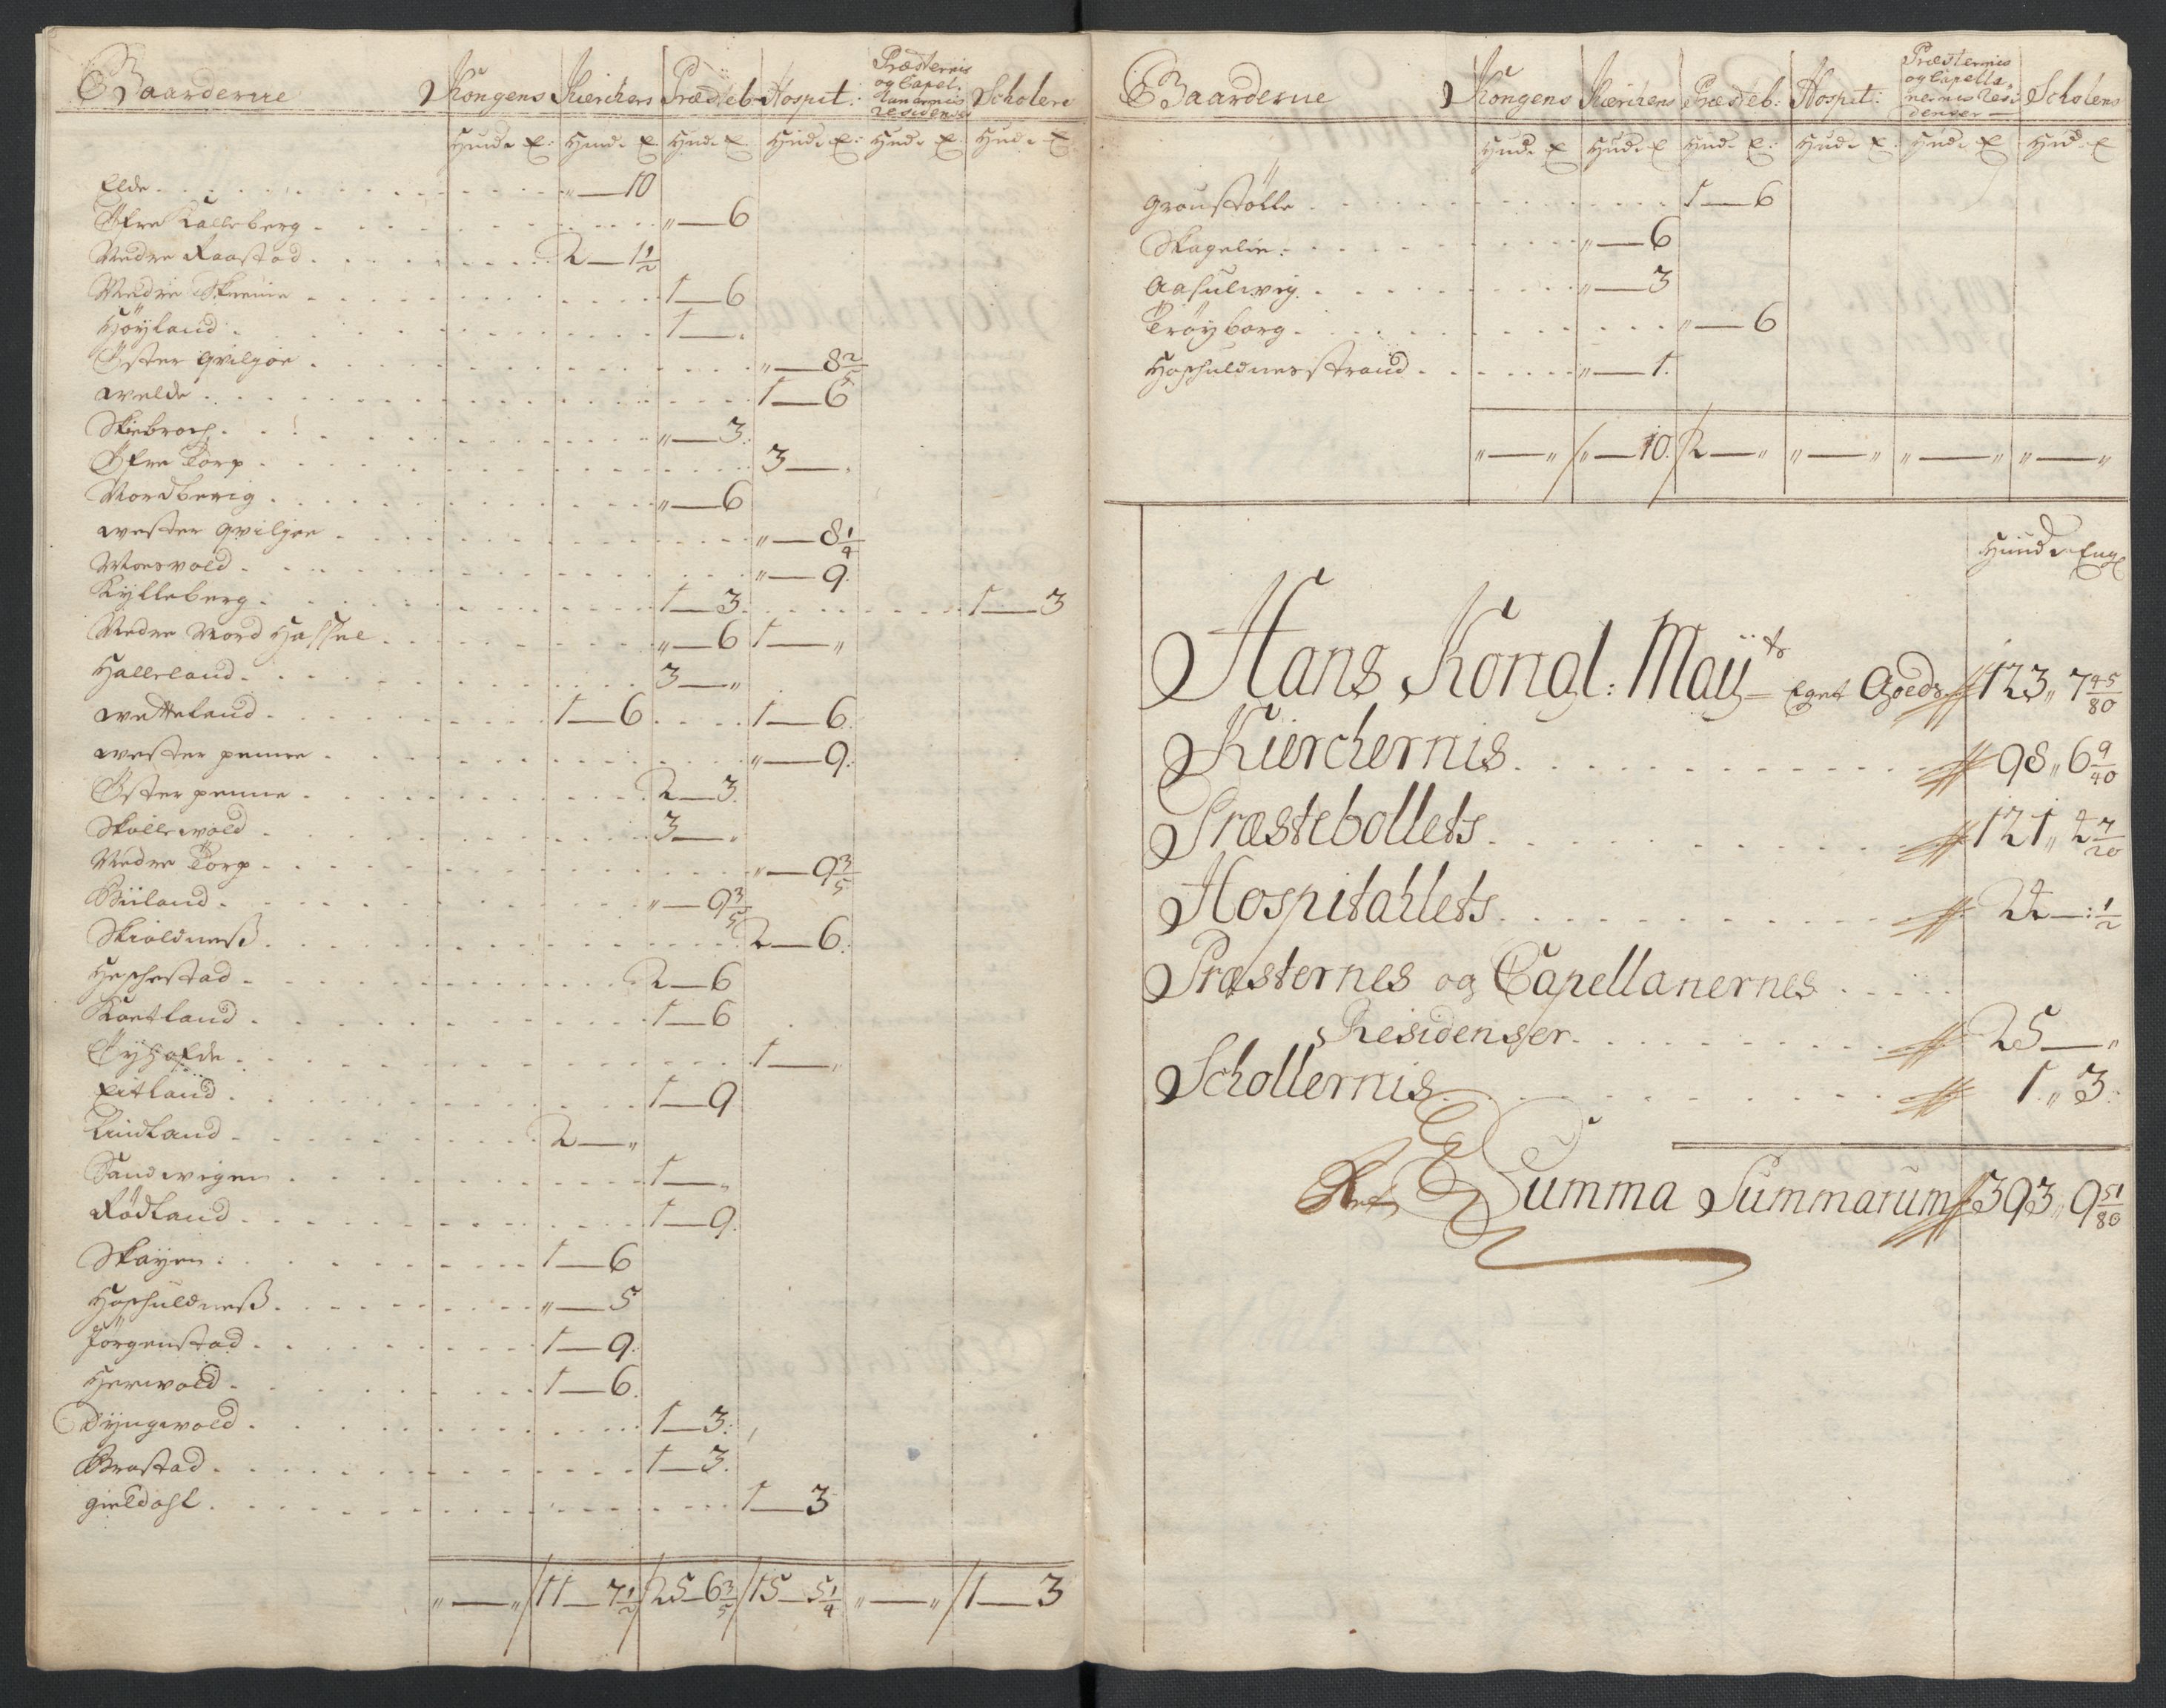 Gaarderne Kongens Kierckens Præsteb: Hospit: Præsternis og Capellanernis Residenser Scholens
Hude E: Hude E Hude E Hude E: Hude E Hude E
Elde - - - „—10
Öfre Kalleberg - - - „—6
Nedre Raastad - - - 2—1½
Nedre Skeime - - - 1—6
Höyland - - - 1—„
Öster Qviljoe - - - „—8 2/5
Welde - - - 1—6
Skiebroch - - - „—3
Öfre Torp - - - 3—„
Nordberig - - - „—6
Wester Qviljoe - - - „—8¼
Moesvold - - - „—9
Kylleberg - - - 1—3 - - - 1—3
Nedre Nord Hassel - - - „—6 1—„
Halleland - - - 3—„
Wetteland - - - 1—6 - - - 1—6
Wester penne - - - „—9
Öster penne - - - 2—3
Skollevold - - - 3—„
Nedre Torp - - - „—9 3/5
Biiland - - - „—9 3/5
Skioldness - - - 2—6
Hechestad - - - 2—6
Kaatland - - - 1—6
Öyhofde - - - 1—„
Eitland - - - 1—9
Lindland - - - 2—„
Sandwigen - - - 1—„
Rödland - - - 1—9
Skayen - - - 1—6
Huschuldness - - - „—5
Jörgenstad - - - 1—9
Herwold - - - 1—6
Dyngwold - - - 1—3
Brastad - - - 1—3
Gieldahl - - - 1—3
„—„ 11—7½ 25—6 3/5 15—5¼ „—„ 1—3
Gaarderne Kongens Kierckens Præsteb: Hospit: Præsternis og Capellanernis Residenser Scholens
Hude E Hude E Hude E: Hude E Hude E Hude E
Gronstölle - - - 1—6
Skagelie - - - „—6
Aasulwig - - - „—3
Tröyborg - - - „—6
Hoschuldnesstrand - - - „—1
„—„ „—10 2—„ „—„ „—„ „—„
Hude Eng
Hans Kongl: Mayts Eget Goeds 123„ 7 45/80
Kierchernis - - - 98„ 6 9/40
Præstebollets - - - 121„ 2 7/20
Hospitahlets - - - 24—: ½
Præsternes og Capellanernes
Residenser - - - 25—„
Schollernis - - - 1„ 3
Summa Summarum 393„ 9 51/80